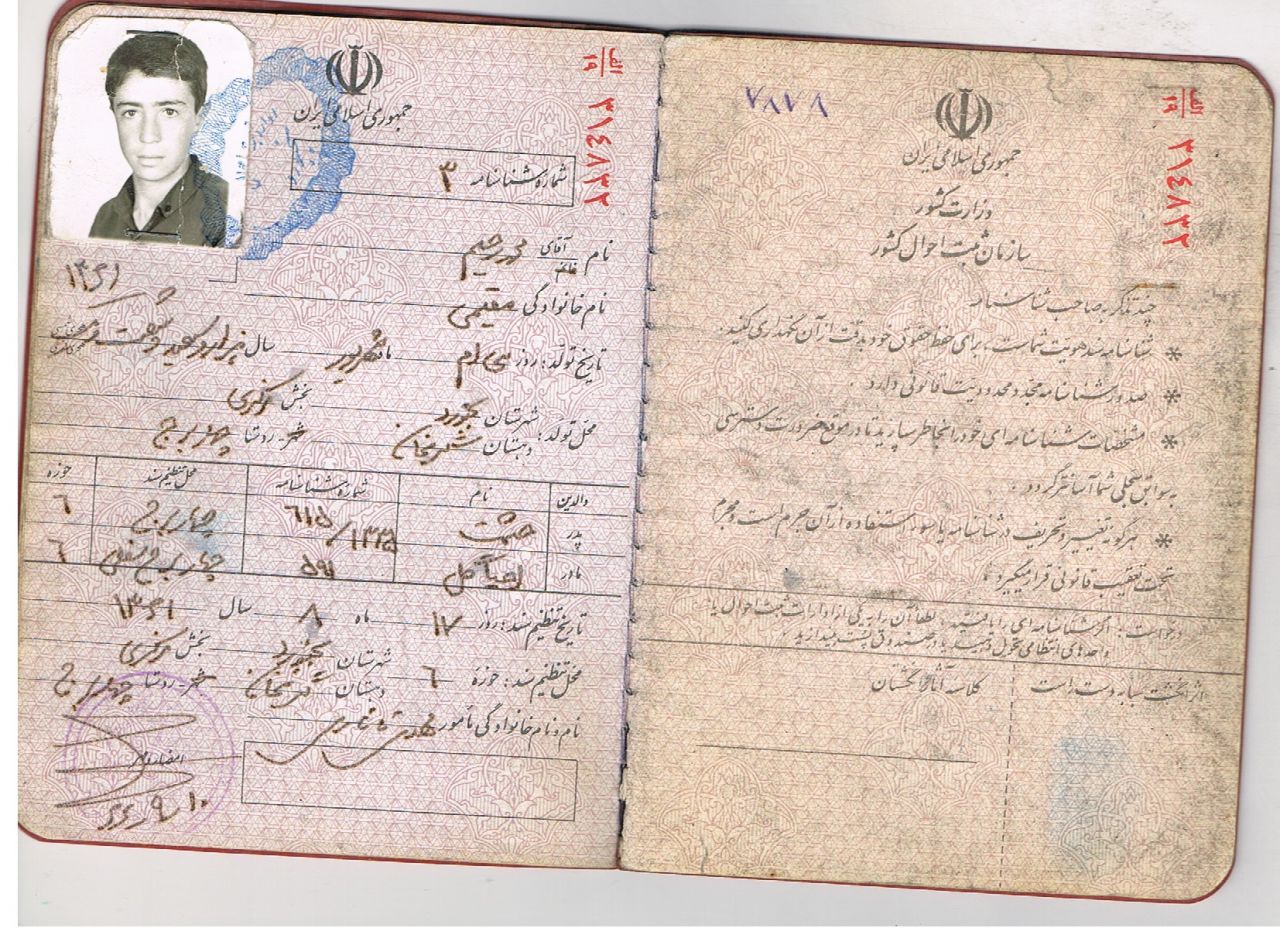 الف
۱۹
۳۱۴۸۳۲
۷۸۷۸
جمهوری اسلامی ایران
وزارت کشور
سازمان ثبت احوال کشور
چند تذکر به صاحب شناسنامه
* شناسنامه سند هویت شماست، برای حفظ حقوق خود بدقت از آن نگهداری کنید.
* صدور شناسنامه مجدد محدودیت قانونی دارد.
* مشخصات شناسنامه ای خود را بخاطر بسپارید تا در موقع ضرورت دسترسی
به سوابق سجلی شما آسانتر گردد.
* هرگونه تغییر و تحریف در شناسنامه یا سوء استفاده از آن جرم است و مجرم
تحت تعقیب قانونی قرار میگیرد.
درخواست: اگر شناسنامه ای را یافتید لطفا آن را به یکی از ادارات ثبت احوال یا
واحدهای انتظامی تحویل دهید یا در صندوق پست بیندازید.
اثر انگشت سبابه دست راست
کلاسه آثار انگشتان
الف
۱۹
۳۱۴۸۳۲
جمهوری اسلامی ایران
شماره شناسنامه ۳
نام آقای خانم محمد رحیم
۱۳۶۱
نام خانوادگی مقیمی
تاریخ تولد: روز سی ام ماه شهریور سال هزار و سیصد و شصت
محل تولد: شهرستان بجنورد بخش مرکزی
دهستان شهر - روستا چهاربرج
والدین نام شماره شناسنامه محل تنظیم سند حوزه
پدر حشمت ۶۱۵/۱۳۳۵ چهاربرج ۶
مادر ۵۹ چهاربرج سفلی ۶
تاریخ تنظیم سند: روز ۱۷ ماه ۸ سال ۱۳۶۱
محل تنظیم سند: حوزه ۶ شهرستان بجنورد بخش مرکزی
دهستان شهر - روستا چهاربرج
نام و نام خانوادگی مأمور
امضاء و مهر